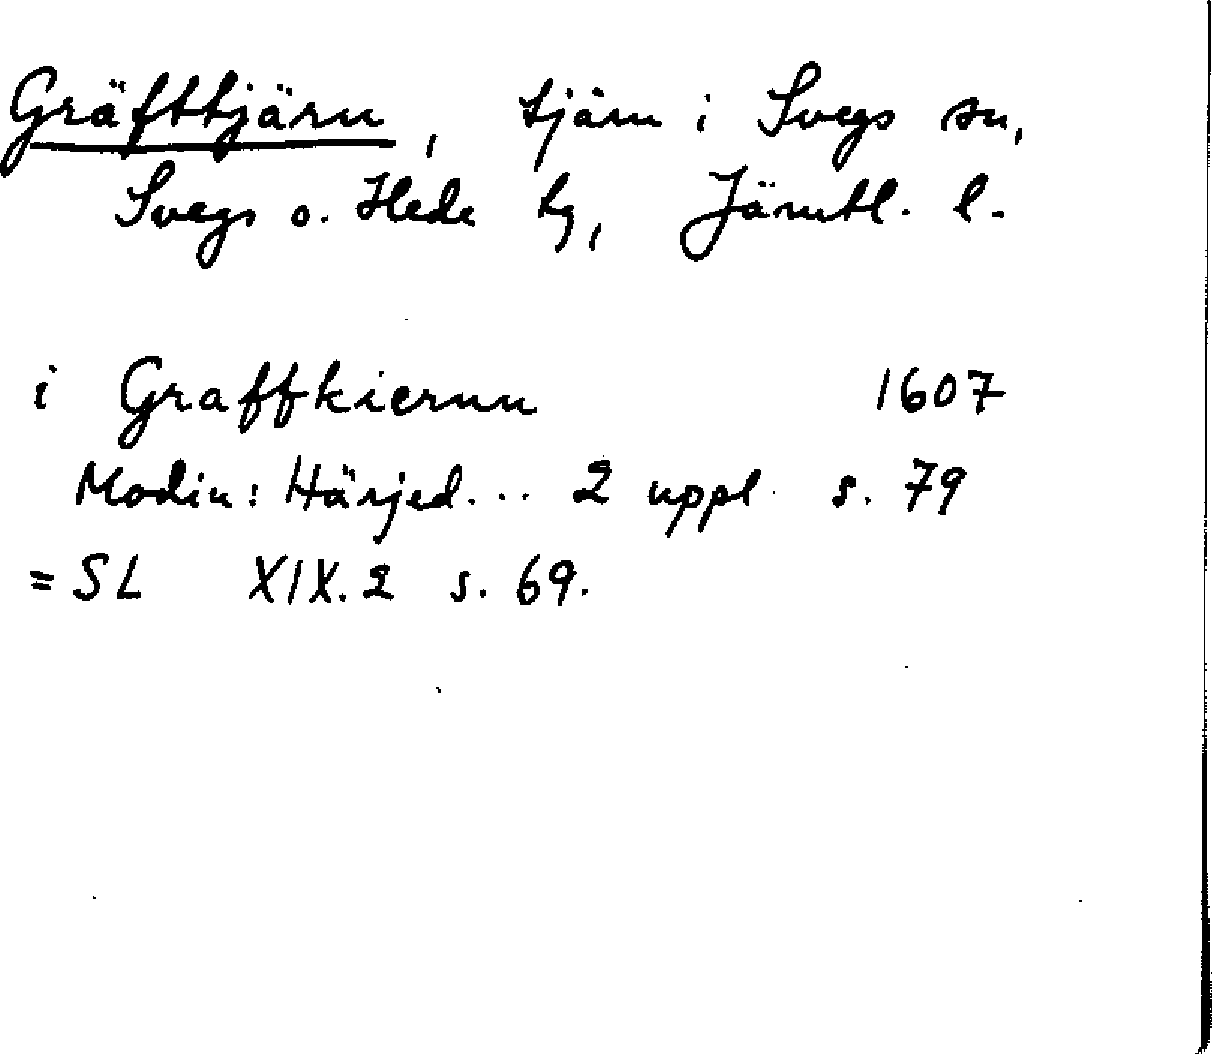 Gräfttjärn, tjärn i Svegs sn,
Svegs o. Hede tg, Jämtl. l.
i Graffkiernn 1607
Modin: Härjed... 2 uppl. s. 79
= SL XIX.2 s. 69.